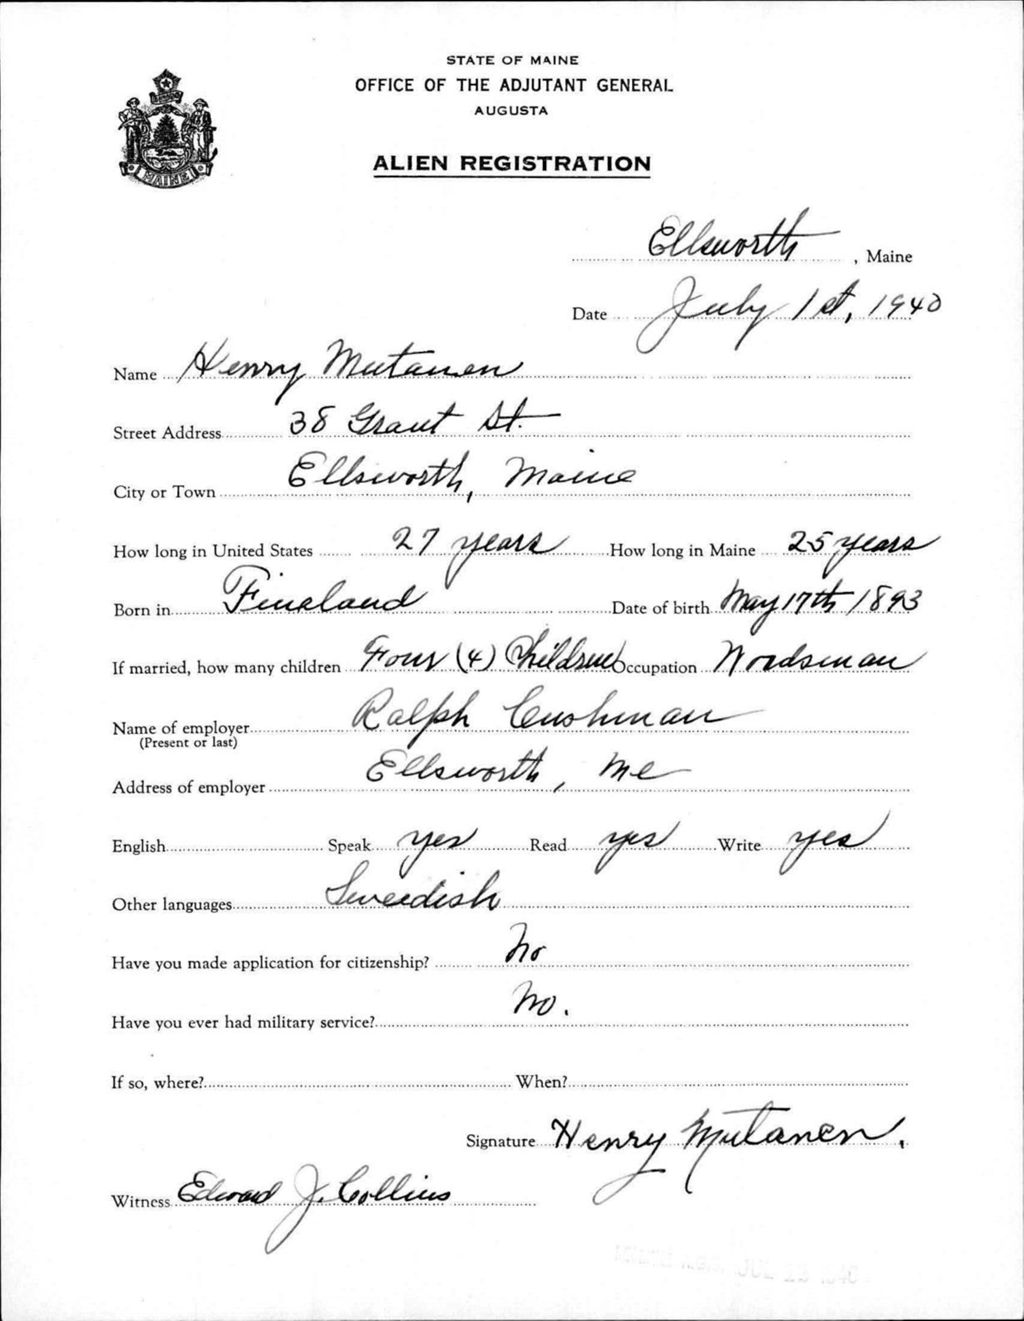 STATE OF MAINE
OFFICE OF THE ADJUTANT GENERAL
AUGUSTA
ALIEN REGISTRATION
MAINE
Ellsworth, Maine
Date July 1st, 1940
Name Henry Mutanen
Street Address 38 Grant St.
City or Town Ellsworth, Maine
How long in United States 27 years How long in Maine 25 years
Born in Fineland Date of birth May 17th 1893
If married, how many children Four (4) Children Occupation Woodsman
Name of employer Ralph Cushman
(Present or last)
Address of employer Ellsworth, Me
English Speak yes Read yes Write yes
Other languages Sweedish
Have you made application for citizenship? No
Have you ever had military service? No.
If so, where? When?
Signature Henry Mutanen.
Witness Edward J. Collins
JUL 13 1940